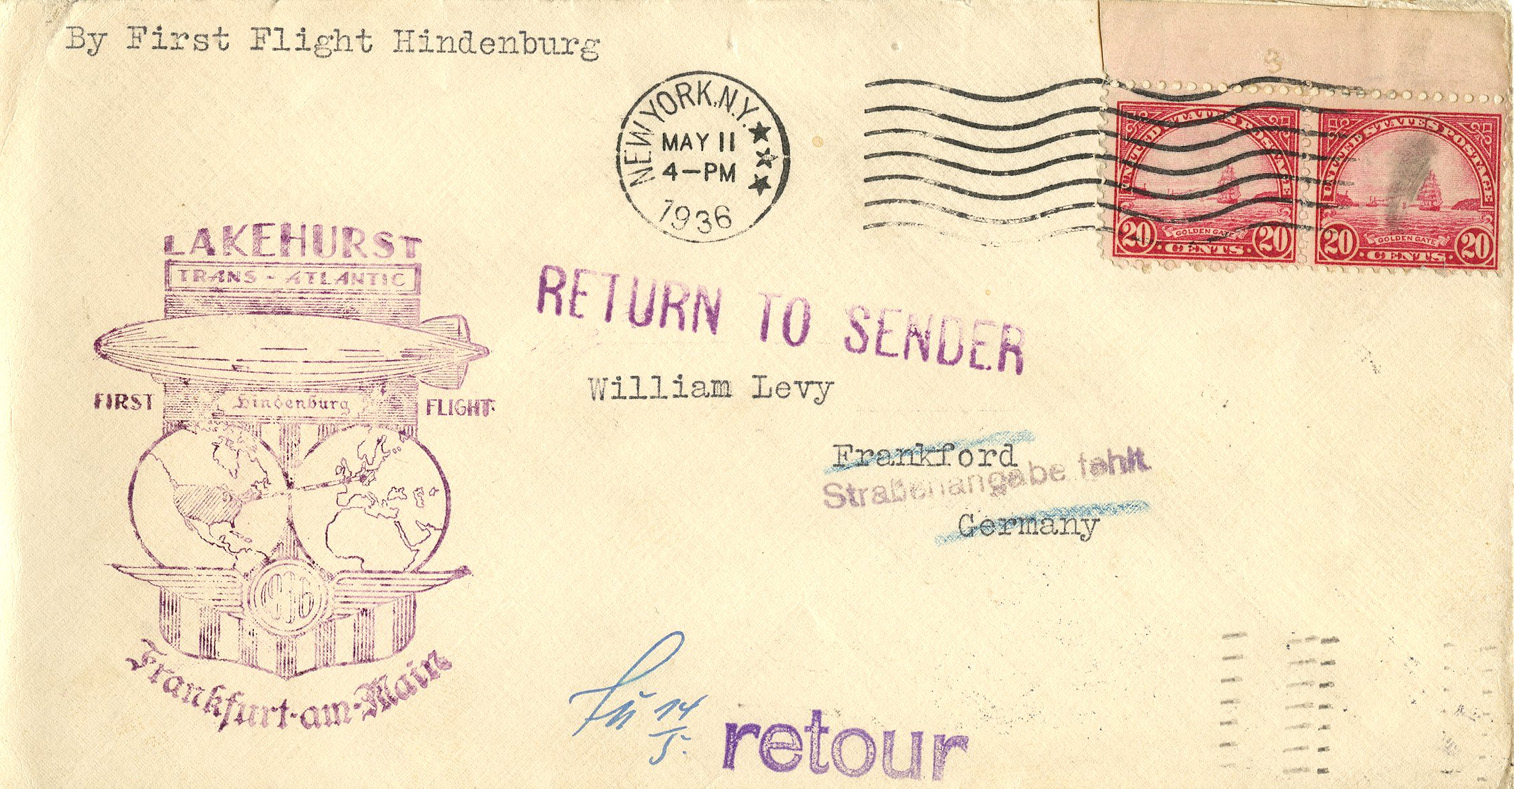 By First Flight Hindenburg
NEW YORK, N.Y.
MAY 11
4-PM
1936
UNITED STATES POSTAGE
GOLDEN GATE
20 CENTS 20
UNITED STATES POSTAGE
GOLDEN GATE
20 CENTS 20
LAKEHURST
TRANS-ATLANTIC
FIRST Hindenburg FLIGHT
1936
Frankfurt-am-Main
RETURN TO SENDER
William Levy
Frankford
Straßenangabe fehlt
Germany
14
5.
retour